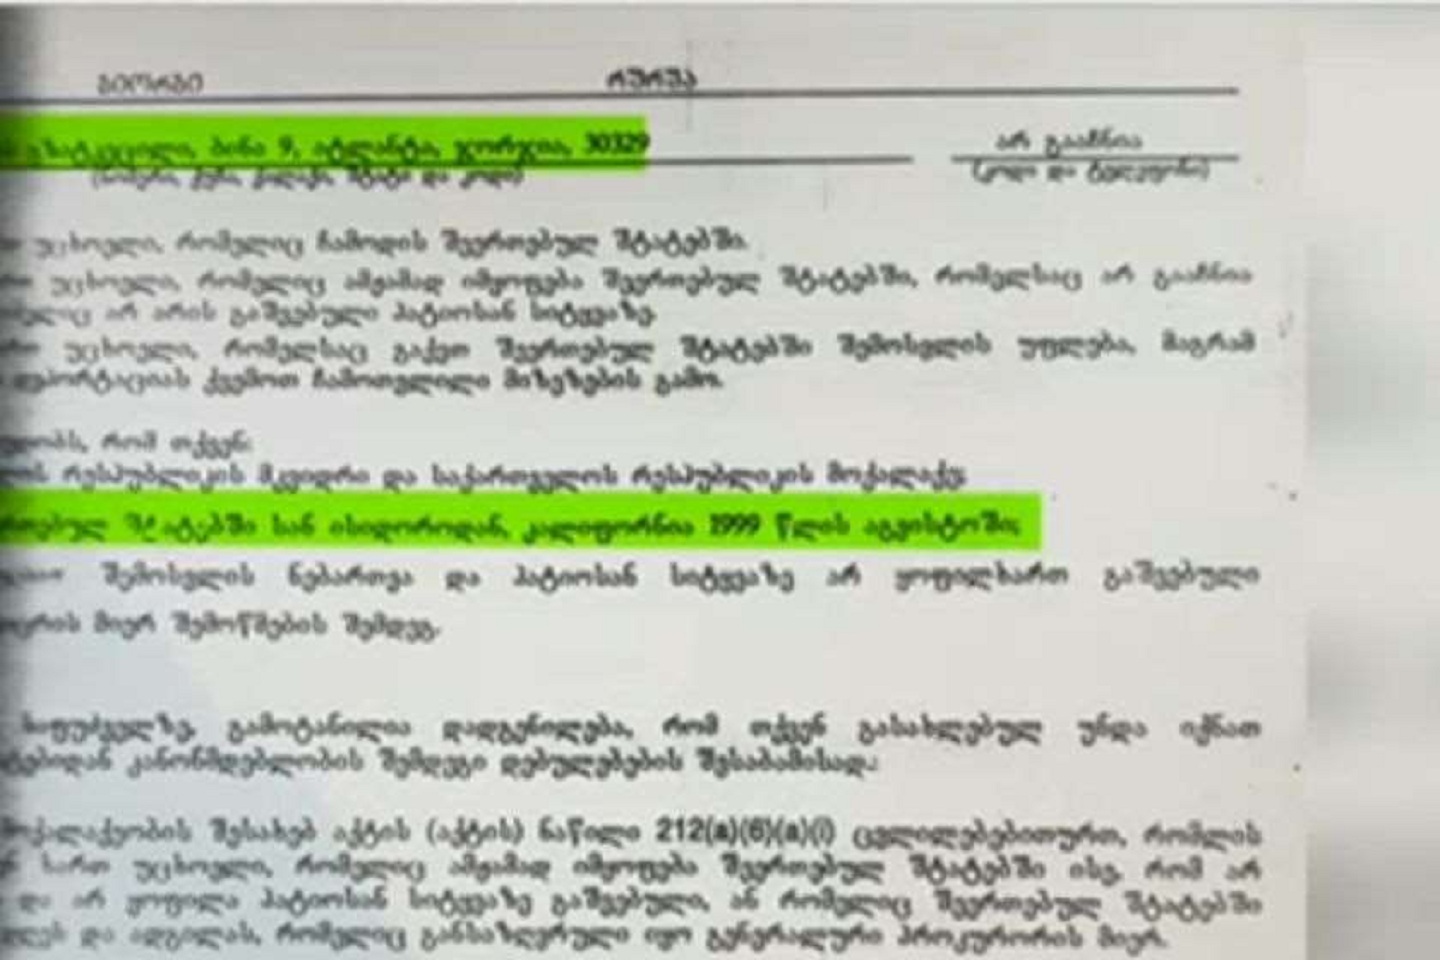 გიორგი რურუა
ბინა 9, ატლანტა, ჯორჯია, 30329 არ გააჩნია
(ნომერი, ქუჩა, ქალაქი, შტატი და კოდი) (კოდი და ტელეფონი)
უცხოელი, რომელიც ჩამოდის შეერთებულ შტატებში.
უცხოელი, რომელიც ამჟამად იმყოფება შეერთებულ შტატებში, რომელსაც არ გააჩნია
არ არის გაშვებული პატიოსან სიტყვაზე.
უცხოელი, რომელსაც გაქვთ შეერთებულ შტატებში შემოსვლის უფლება, მაგრამ
დეპორტაციას ქვემოთ ჩამოთვლილი მიზეზების გამო.
რომ თქვენ:
რესპუბლიკის მკვიდრი და საქართველოს რესპუბლიკის მოქალაქე;
შტატებში სან ისიდოროდან, კალიფორნია 1999 წლის აგვისტოში;
შემოსვლის ნებართვა და პატიოსან სიტყვაზე არ ყოფილხართ გაშვებული
მიერ შემოწმების შემდეგ.
საფუძველზე, გამოტანილია დადგენილება, რომ თქვენ გასახლებულ უნდა იქნათ
კანონმდებლობის შემდეგი დებულებების შესაბამისად:
შესახებ აქტის (აქტის) ნაწილი 212(a)(6)(a)(i) ცვლილებებითურთ, რომლის
ხართ უცხოელი, რომელიც ამჟამად იმყოფება შეერთებულ შტატებში ისე, რომ არ
და არ ყოფილა პატიოსან სიტყვაზე გაშვებული, ან რომელიც შეერთებულ შტატებში
და ადგილას, რომელიც განსაზღვრული იყო გენერალური პროკურორის მიერ.